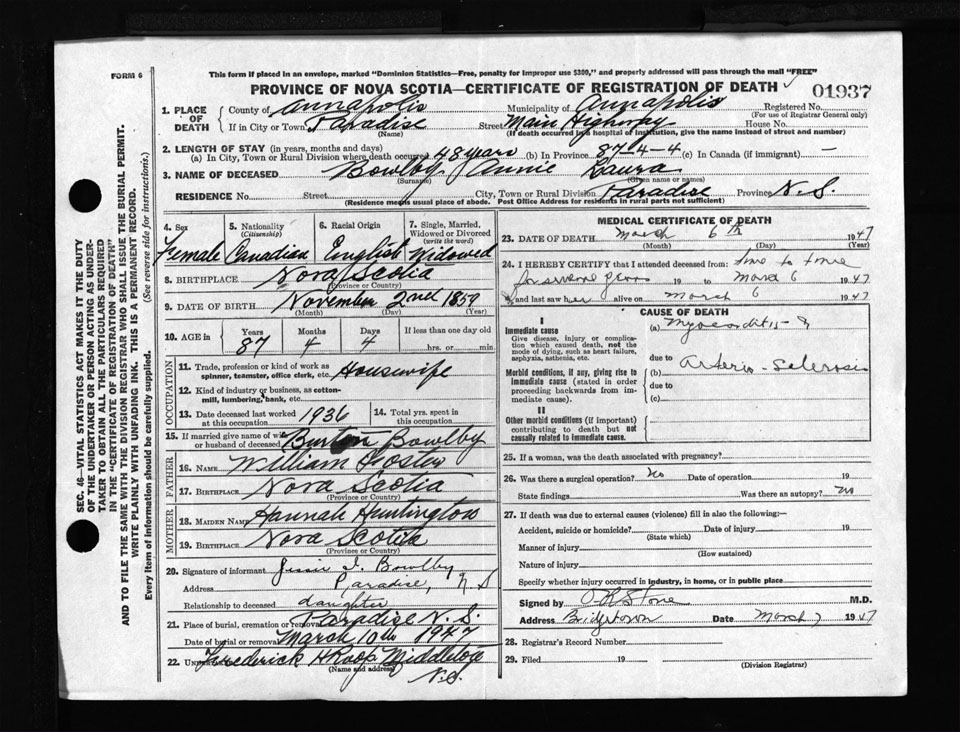 FORM 6
This form if placed in an envelope, marked "Dominion Statistics—Free, penalty for improper use $300," and properly addressed will pass through the mail "FREE"
PROVINCE OF NOVA SCOTIA—CERTIFICATE OF REGISTRATION OF DEATH
01937
1. PLACE OF DEATH
County of Annapolis Municipality of Annapolis Registered No.
(For use of Registrar General only)
If in City or Town Paradise Street Main Highway House No.
(Name) (If death occurred in a hospital of institution, give the name instead of street and number)
2. LENGTH OF STAY (in years, months and days)
(a) In City, Town or Rural Division where death occurred 48 years (b) In Province 87-4-4 (c) In Canada (if immigrant) —
3. NAME OF DECEASED Bowlby Annie Laura
(Surname) (Given name or names)
RESIDENCE No. Street City, Town or Rural Division Paradise Province N.S.
(Residence means usual place of abode. Post Office Address for residents in rural parts not sufficient)
SEC. 46—VITAL STATISTICS ACT MAKES IT THE DUTY
OF THE UNDERTAKER OR PERSON ACTING AS UNDER-
TAKER TO OBTAIN ALL THE PARTICULARS REQUIRED
IN THE "CERTIFICATE OF REGISTRATION OF DEATH"
AND TO FILE THE SAME WITH THE DIVISION REGISTRAR WHO SHALL ISSUE THE BURIAL PERMIT.
WRITE PLAINLY WITH UNFADING INK. THIS IS A PERMANENT RECORD.
Every item of information should be carefully supplied. (See reverse side for instructions.)
4. Sex 5. Nationality (Citizenship) 6. Racial Origin 7. Single, Married, Widowed or Divorced (write the word)
Female Canadian English Widowed
8. BIRTHPLACE Nova Scotia
(Province or Country)
9. DATE OF BIRTH November 2nd 1859
(Month) (Day) (Year)
10. AGE in Years Months Days If less than one day old
87 4 4 hrs. or min.
OCCUPATION
11. Trade, profession or kind of work as spinner, teamster, office clerk, etc. Housewife
12. Kind of industry or business, as cotton-mill, lumbering, bank, etc.
13. Date deceased last worked at this occupation 1936 14. Total yrs. spent in this occupation
15. If married give name of wife or husband of deceased Burton Bowlby
FATHER
16. NAME William Foster
17. BIRTHPLACE Nova Scotia
(Province or Country)
MOTHER
18. MAIDEN NAME Hannah Huntington
19. BIRTHPLACE Nova Scotia
(Province or Country)
20. Signature of informant Jessie I. Bowlby
Address Paradise, N S
Relationship to deceased daughter
21. Place of burial, cremation or removal Paradise N.S.
Date of burial or removal March 10th 1947
22. Frederick H Roop Middleton
(Name and address) N.S.
MEDICAL CERTIFICATE OF DEATH
23. DATE OF DEATH March 6th 1947
(Month) (Day) (Year)
24. I HEREBY CERTIFY that I attended deceased from: time to time
19 to March 6 1947
and last saw her alive on March 6 1947
CAUSE OF DEATH
I
Immediate cause
Give disease, injury or complication which caused death, not the mode of dying, such as heart failure, asphyxia, asthenia, etc.
(a) Myocarditis
due to
Morbid conditions, if any, giving rise to immediate cause (stated in order proceeding backwards from immediate cause).
(b) Arterio-Sclerosis
due to
(c)
II
Other morbid conditions (if important) contributing to death but not causally related to immediate cause.
25. If a woman, was the death associated with pregnancy?
26. Was there a surgical operation? No Date of operation 19
State findings Was there an autopsy? no
27. If death was due to external causes (violence) fill in also the following:—
Accident, suicide or homicide? Date of injury 19
(State which)
Manner of injury
(How sustained)
Nature of injury
Specify whether injury occurred in industry, in home, or in public place
Signed by M.D.
Address Bridgetown Date March 7 1947
28. Registrar's Record Number
29. Filed 19
(Division Registrar)